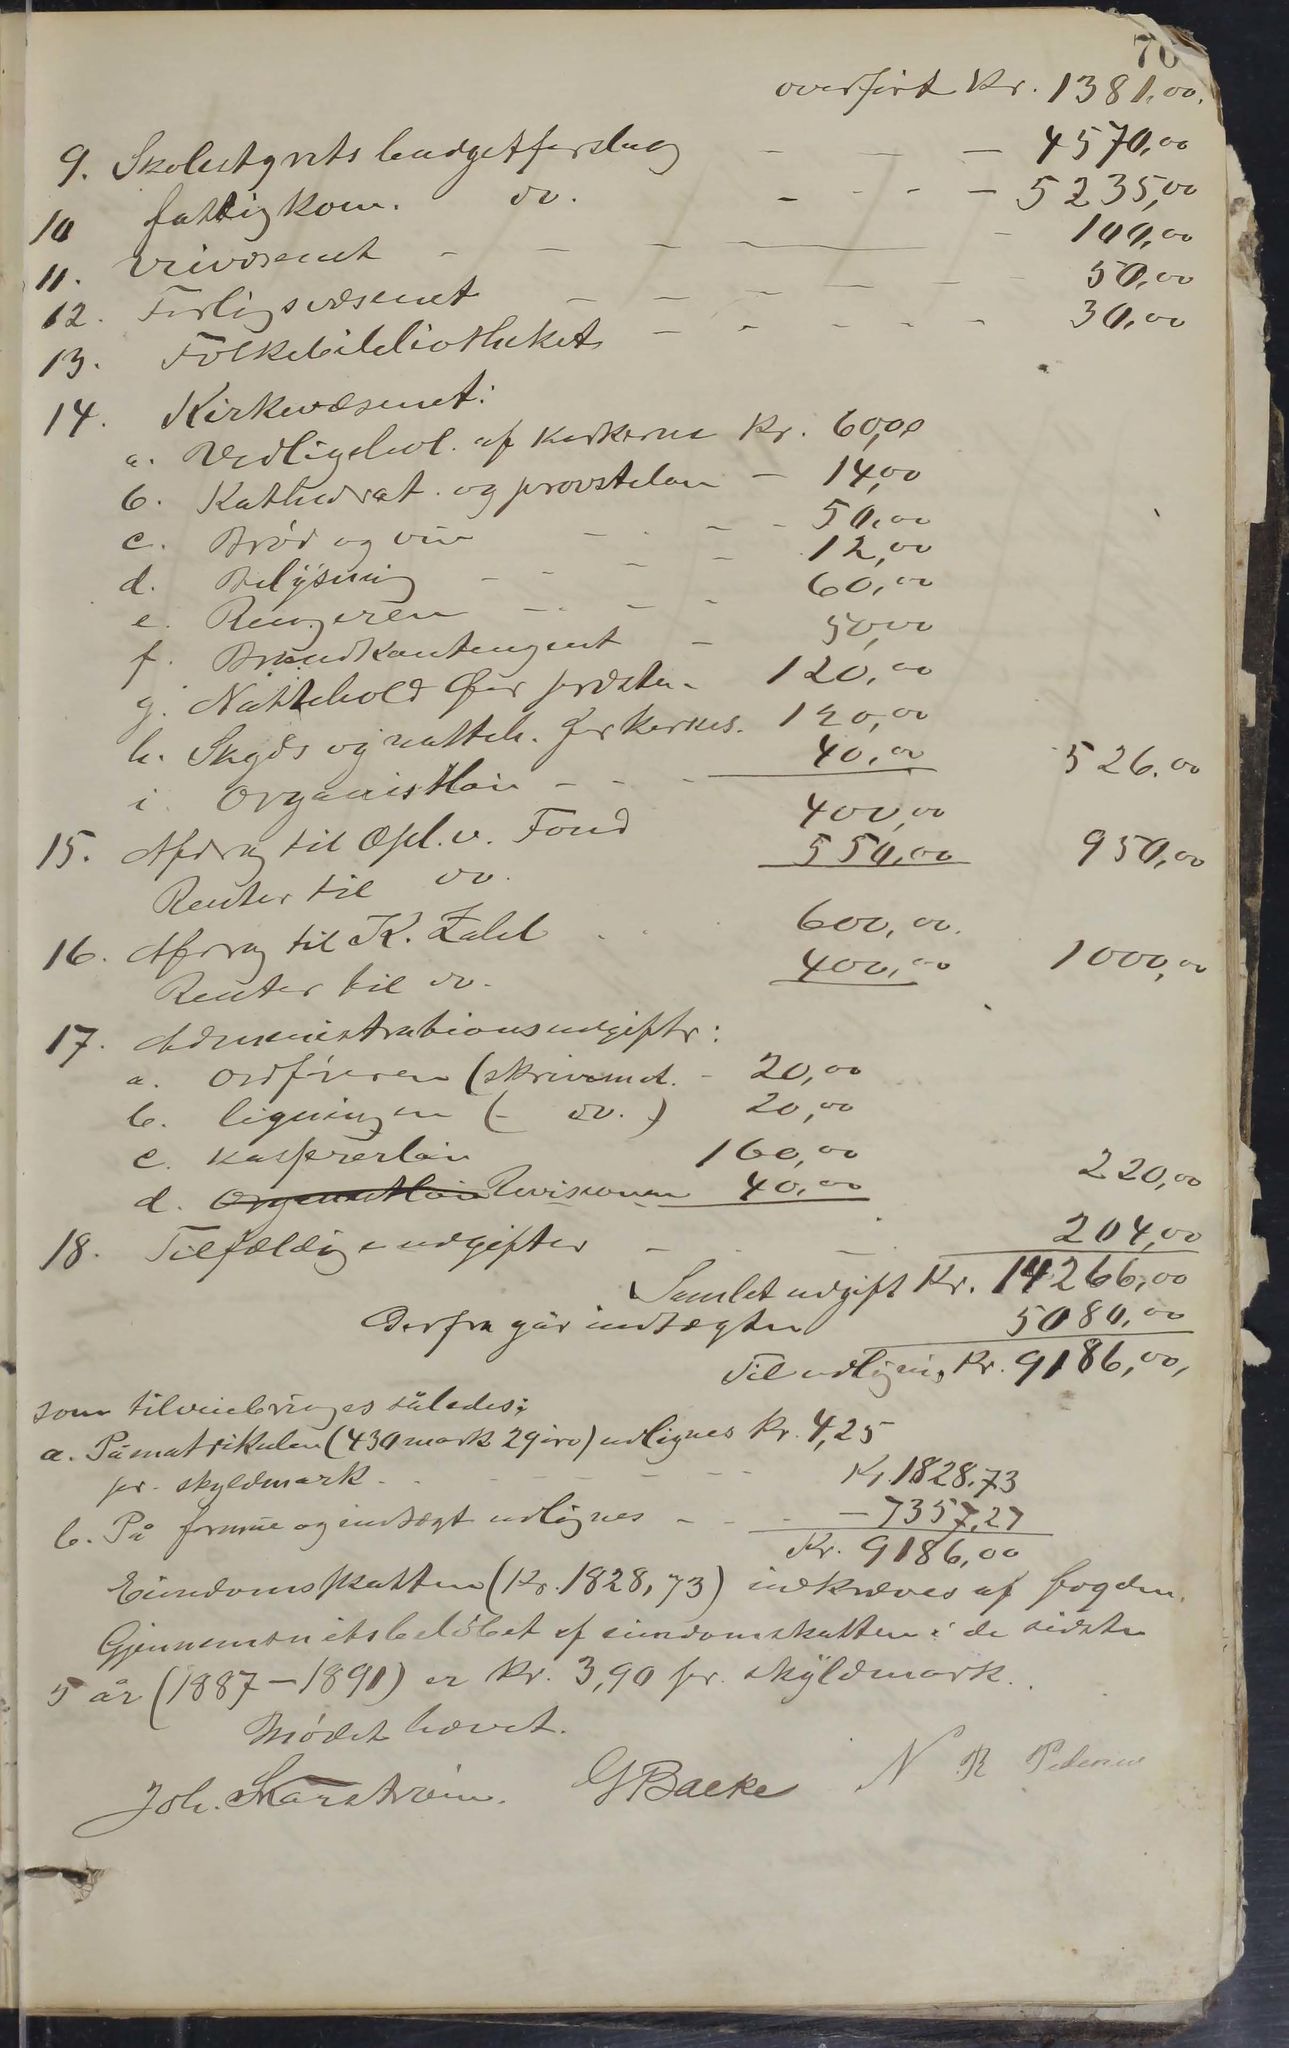 70
overført Kr. 1381,00.
9. Skolestyrets budgetforslag — — — 4570,00
10 fattigkom. do. - - - — 5235,00
11. Veivæsenet - — — — - 100,00
12. Forligsvæsenet — — — — - - 50,00
13. Folkebibliotheket — - - - - 30,00
14. Kirkevæsenet:
a. Vedligehol. af kirkerne Kr. 60,00
b. Kathedrat. og provsteløn — 14,00
c. Brød og vin - - - - 50,00
d. Belysning - - - - 12,00
e. Rengøren - - - - 60,00
f. Brandkontengent - 50,00
g. Nattehold for præsten - 120,00
h. Skyds og natteh. for kirkes. 120,00
i. Organistløn - - - 40,00 526.00
15. Afdrag til Opl. v. Fond 400,00
Renter til do. 550,00 950,00
16. Afdrag til K. Zahl 600,00.
Renter til do. 400,00 1000,00
17. Administrationsudgifter:
a. Ordføreren (skrivemat. - 20,00
b. ligningen (- do. -) 20,00
c. kassererløn 160,00
d. Organistløn Revisionen 40,00 220,00
18. Tilfældige udgifter — - — 204,00
Samlet udgift Kr. 14266,00
Derfra går indtægten 5080,00
Til udligning Kr. 9186,00,
som tilveiebringes således:
a. På matrikulen (430 mark 29 øre) udlignes Kr. 4,25
pr. skyldmark - - - - - Kr. 1828,73
b. På formue og indtægt udlignes - - - — 7357,27
Kr. 9186,00
Eiendomsskatten (Kr. 1828,73) indkræves af fogden.
Gjennemsnitsbeløbet af eiendomsskatten i de sidste
5 år (1887—1891) er Kr. 3,90 pr. skyldmark.
Mødet hævet.
Joh. Skarstrøm. G Backe N R Pedersen